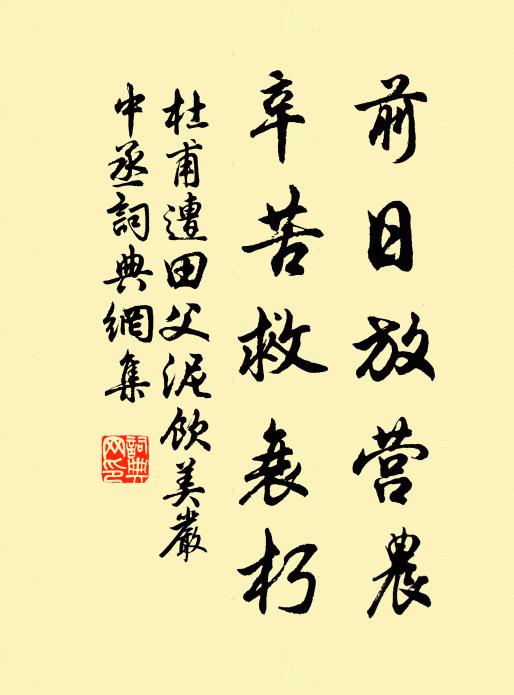 前日放营農
辛苦救衰朽
杜甫遭田父泥飲美嚴
中丞詞典網集
詞典
网印